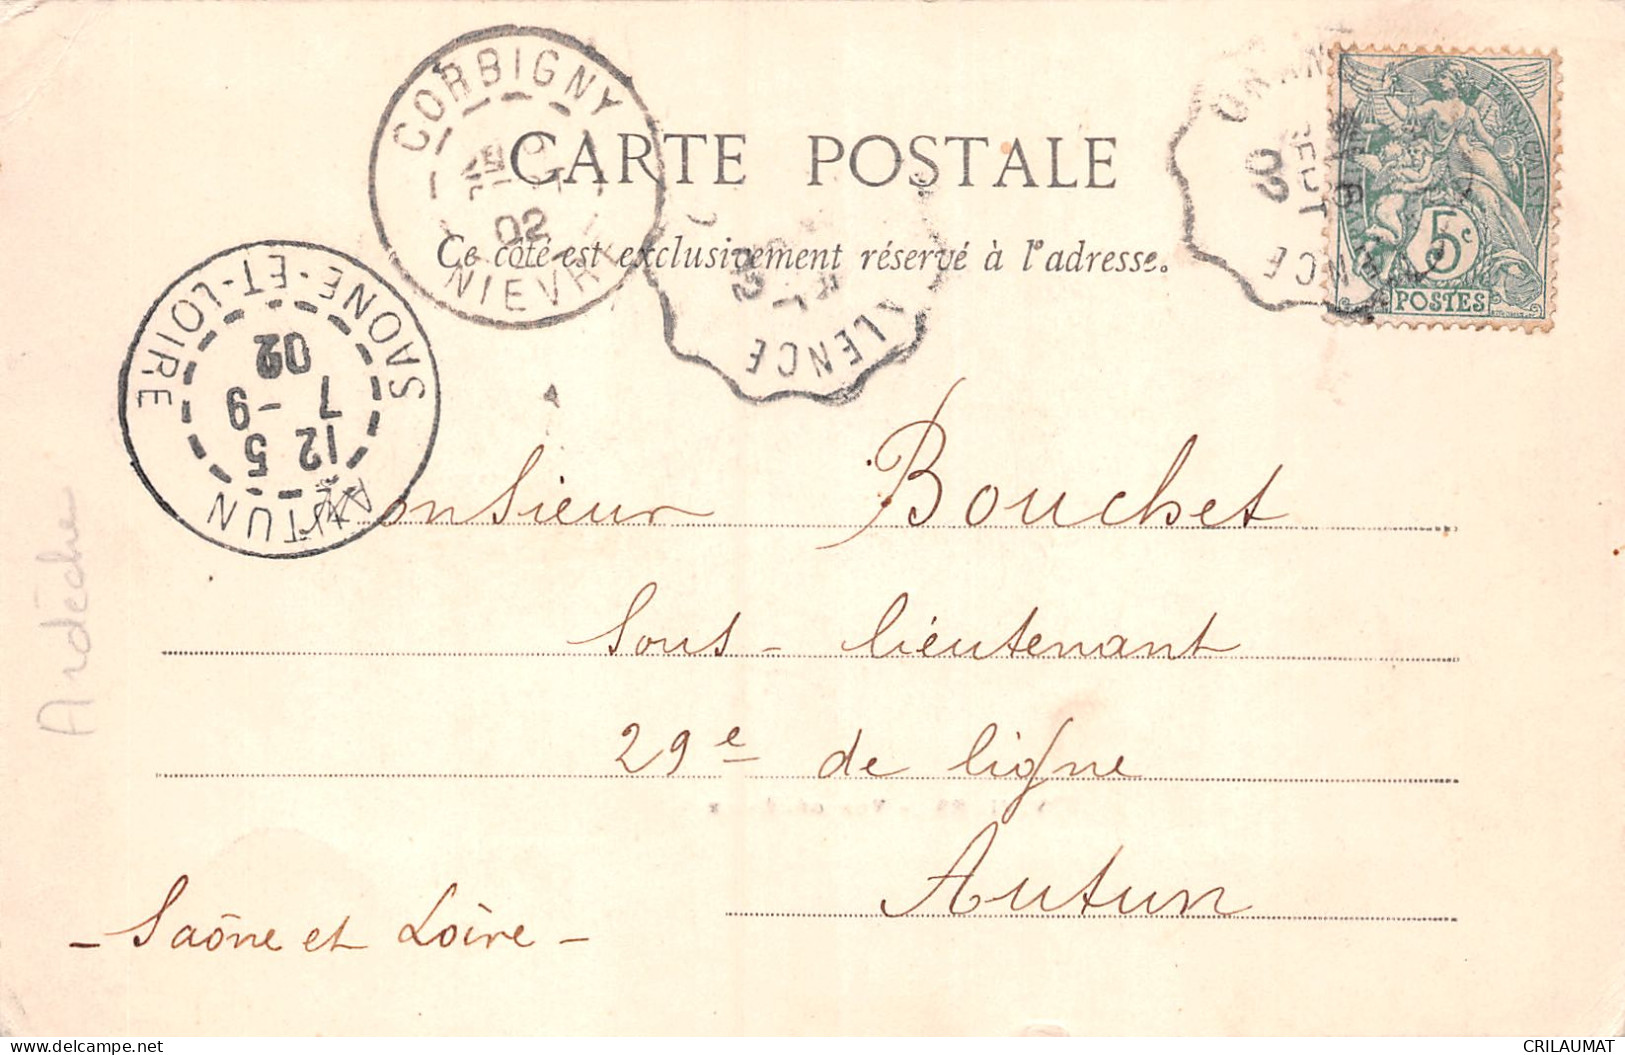 CARTE POSTALE
Ce côté est exclusivement réservé à l'adresse.
CORBIGNY
02
NIEVRE
VALENCE
02
VALENCE
FRANÇAISE
5c
POSTES
SAONE-ET-LOIRE
AUTUN
12 5
7 -9
02
Monsieur Bouchet
Sous-lieutenant
29e de ligne
Autun
- Saône et Loire -
Ardèche
CRILAUMAT